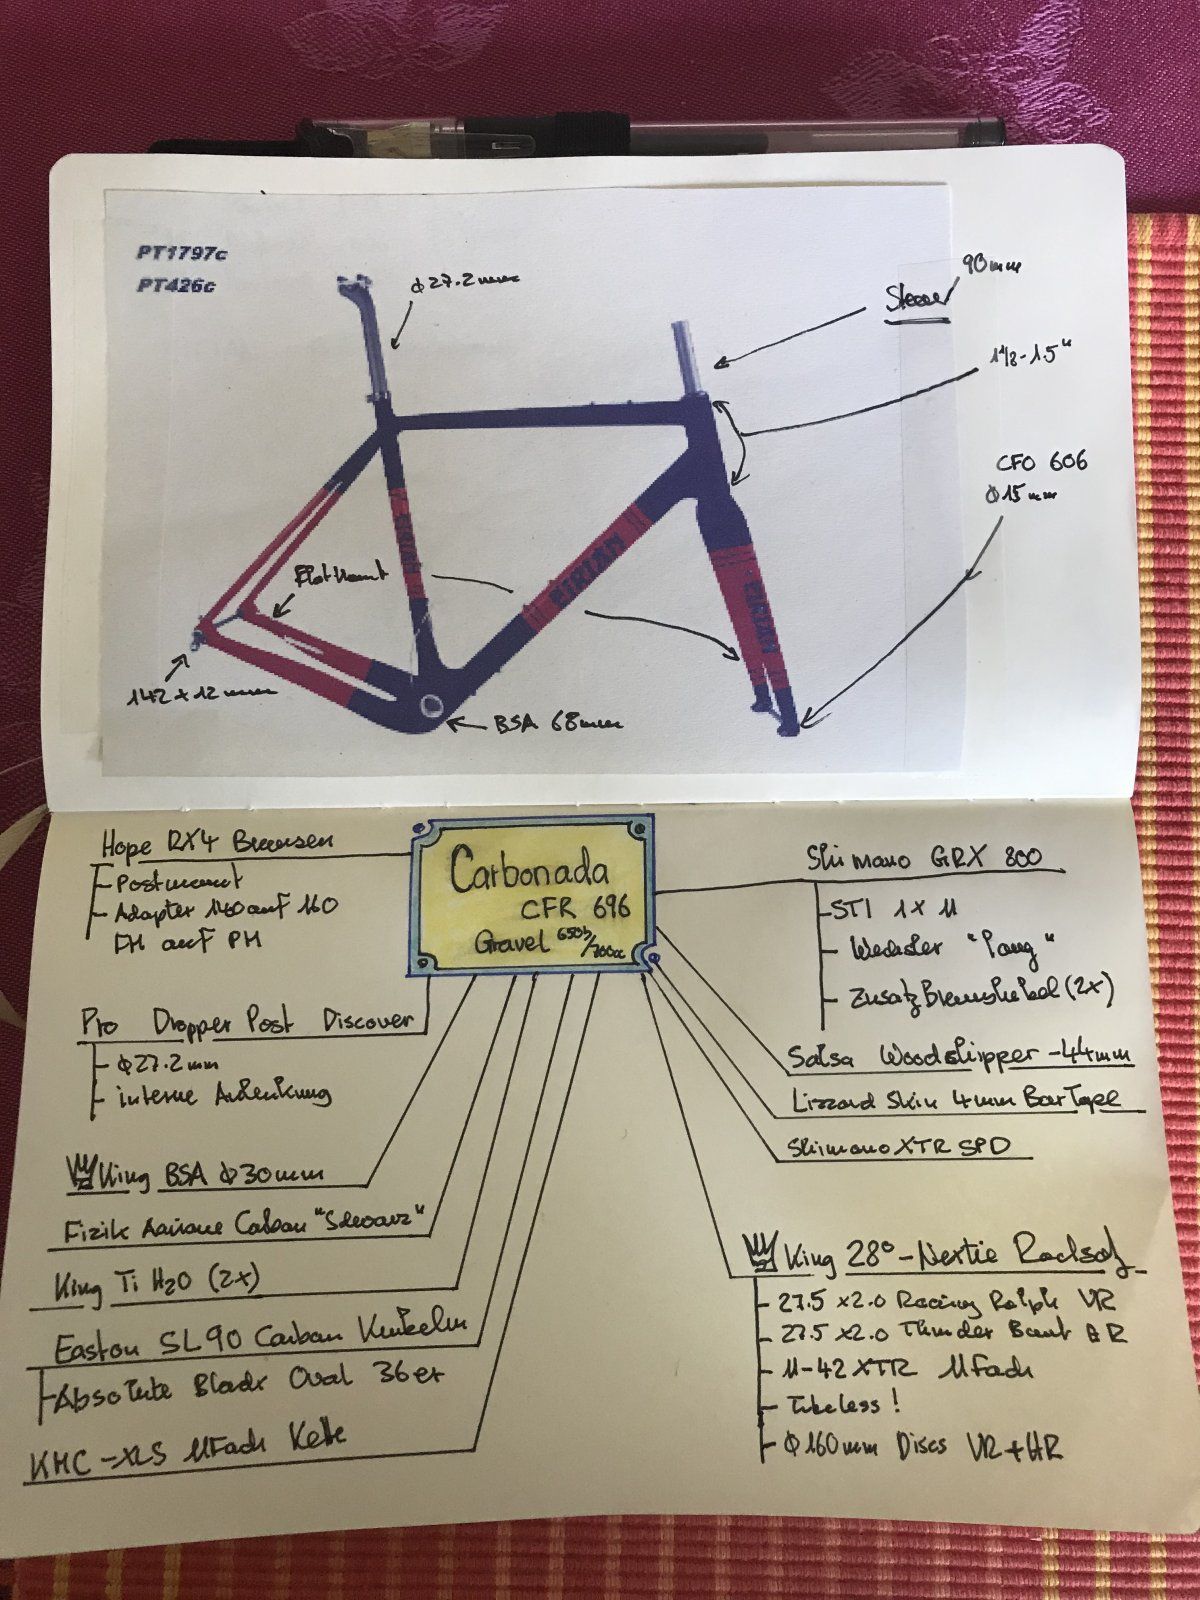 PT1797c
PT426c
ϕ27.2mm
90mm
1 1/8-1.5"
CFO 606
ϕ15mm
PIRIAN
PIRIAN
PIRIAN
142 x 12mm
BSA 68mm
Hope RX4 Bremsen
- Postmount
- Adapter 140 auf 160
FM auf PM
Pro Dropper Post Discover
- ϕ27.2mm
- interne Anlenkung
King BSA ϕ30mm
Fizik Carbon "Schwarz"
King Ti H2O (2x)
Easton SL90 Carbon Kurbeln
- Absolute Black Oval 36er
KMC - 11Fach Kette
Carbonada
CFR 696
Gravel 650b/700cc
Shimano GRX 800
- STI 1x11
- Wechsler "lang"
- Zusatz Bremshebel (2x)
Salsa Woodchipper - 44mm
Lizzard Skin 4mm Bar Tape
Shimano XTR SPD
King 28° - Nextie Radsatz
- 27.5 x2.0 Racing Ralph VR
- 27.5 x2.0 Thunder Burt HR
- 11-42 XTR 11Fach
- Tubeless!
- ϕ160mm Discs VR+HR